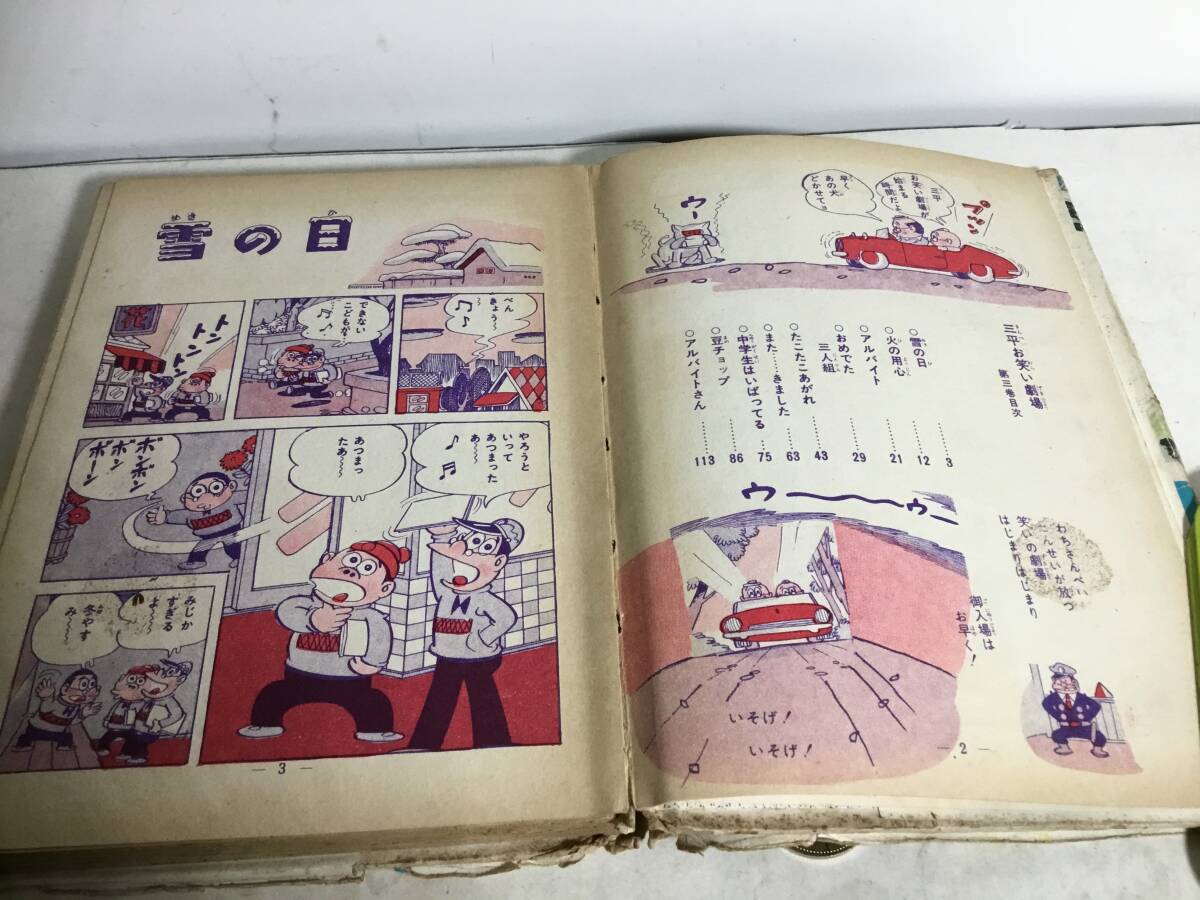 プップッ
三平
お笑い劇場が
始まる
時間だよ
早く
あの犬
どかせて。
ウー
三平お笑い劇場
第三巻目次
○雪の日……3
○火の用心……12
○アルバイト……21
○おめでた
三人組……29
○たこたこあがれ……43
○また……きました……63
○中学生はいばってる……75
○豆チョップ……86
○アルバイトさん……113
わちさんぺい
せんせいが放つ
笑いの劇場
はじまりはじまり
御入場は
お早く!
ウー〜〜ウー
いそげ!
いそげ!
— 2 —
雪の日
ゆき
ひ
べん
きょう〜
〜
できない
こどもが
……
トントン
トントン
やろうと
いって
あつまった
あ〜〜〜
あつまっ
たあ〜〜〜
ボンボン
ボンボン
ボーン
みじか
すぎる
よ〜〜〜
冬やす
み〜〜〜
— 3 —